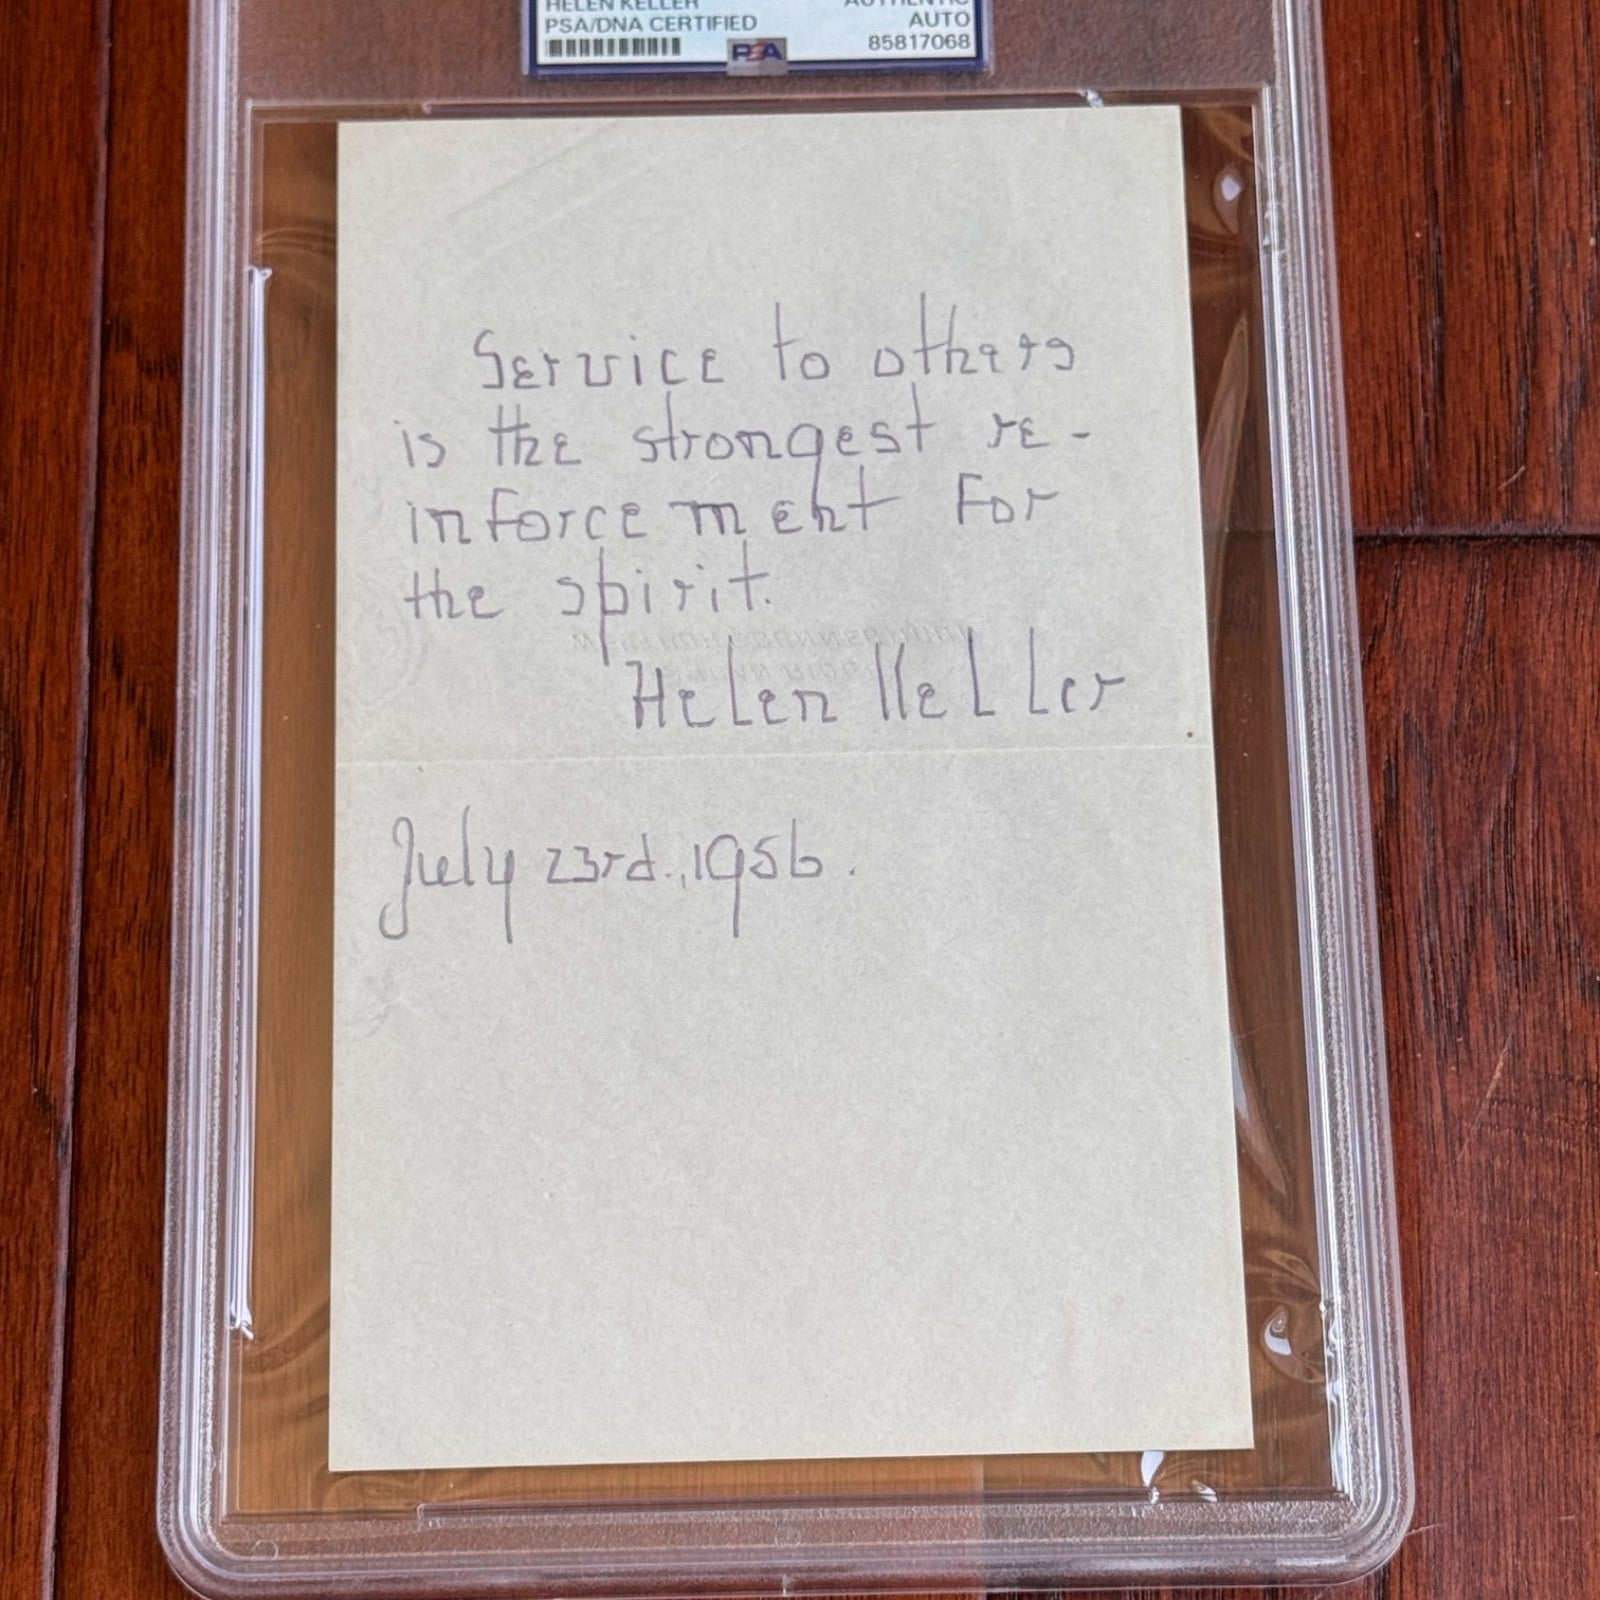 HELEN KELLER AUTHENTIC
PSA/DNA CERTIFIED AUTO
PSA 85817068
Service to others
is the strongest re-
inforcement for
the spirit.
Helen Keller
July 23rd., 1956.